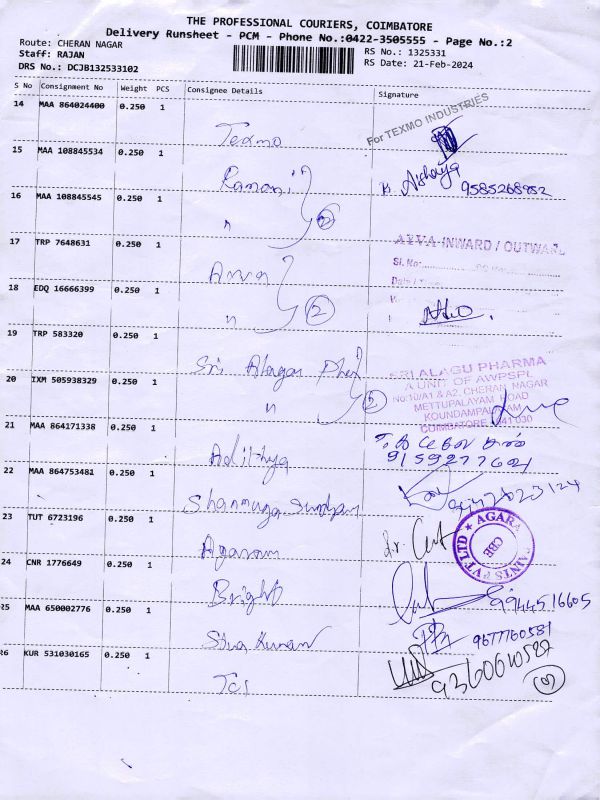 THE PROFESSIONAL COURIERS, COIMBATORE
Delivery Runsheet - PCM - Phone No.:0422-3505555 - Page No.:2
Route: CHERAN NAGAR
Staff: RAJAN
DRS No.: DCJB132533102
RS No.: 1325331
RS Date: 21-Feb-2024
S No Consignment No Weight PCS Consignee Details Signature
14 MAA 864024400 0.250 1
Texmo
For TEXMO INDUSTRIES
15 MAA 108845534 0.250 1
Ramani
Aishwarya 9585268952
16 MAA 108845545 0.250 1
" 2
17 TRP 7648631 0.250 1
ALVA INWARD / OUTWARD
Sl. No:
Date / Time
18 EDQ 16666399 0.250 1
" 2
19 TRP 583320 0.250 1
Sri Alagar
SRI ALAGU PHARMA
A UNIT OF AWPSPL
No:10/A1 & A2, CHERAN NAGAR
METTUPALAYAM ROAD
KOUNDAMPALAYAM
COIMBATORE - 641 030
20 IXM 505938329 0.250 1
" 2
21 MAA 864171338 0.250 1
Adithya
9159277621
22 MAA 864753481 0.250 1
Shanmuga Sundram
23 TUT 6723196 0.250 1
Agaram
AGARAM PAINTS PVT LTD
CBE
24 CNR 1776649 0.250 1
Bright
9944516605
25 MAA 650002776 0.250 1
Siva Kumar
9677760581
26 KUR 531030165 0.250 1
Tcs
9360610522